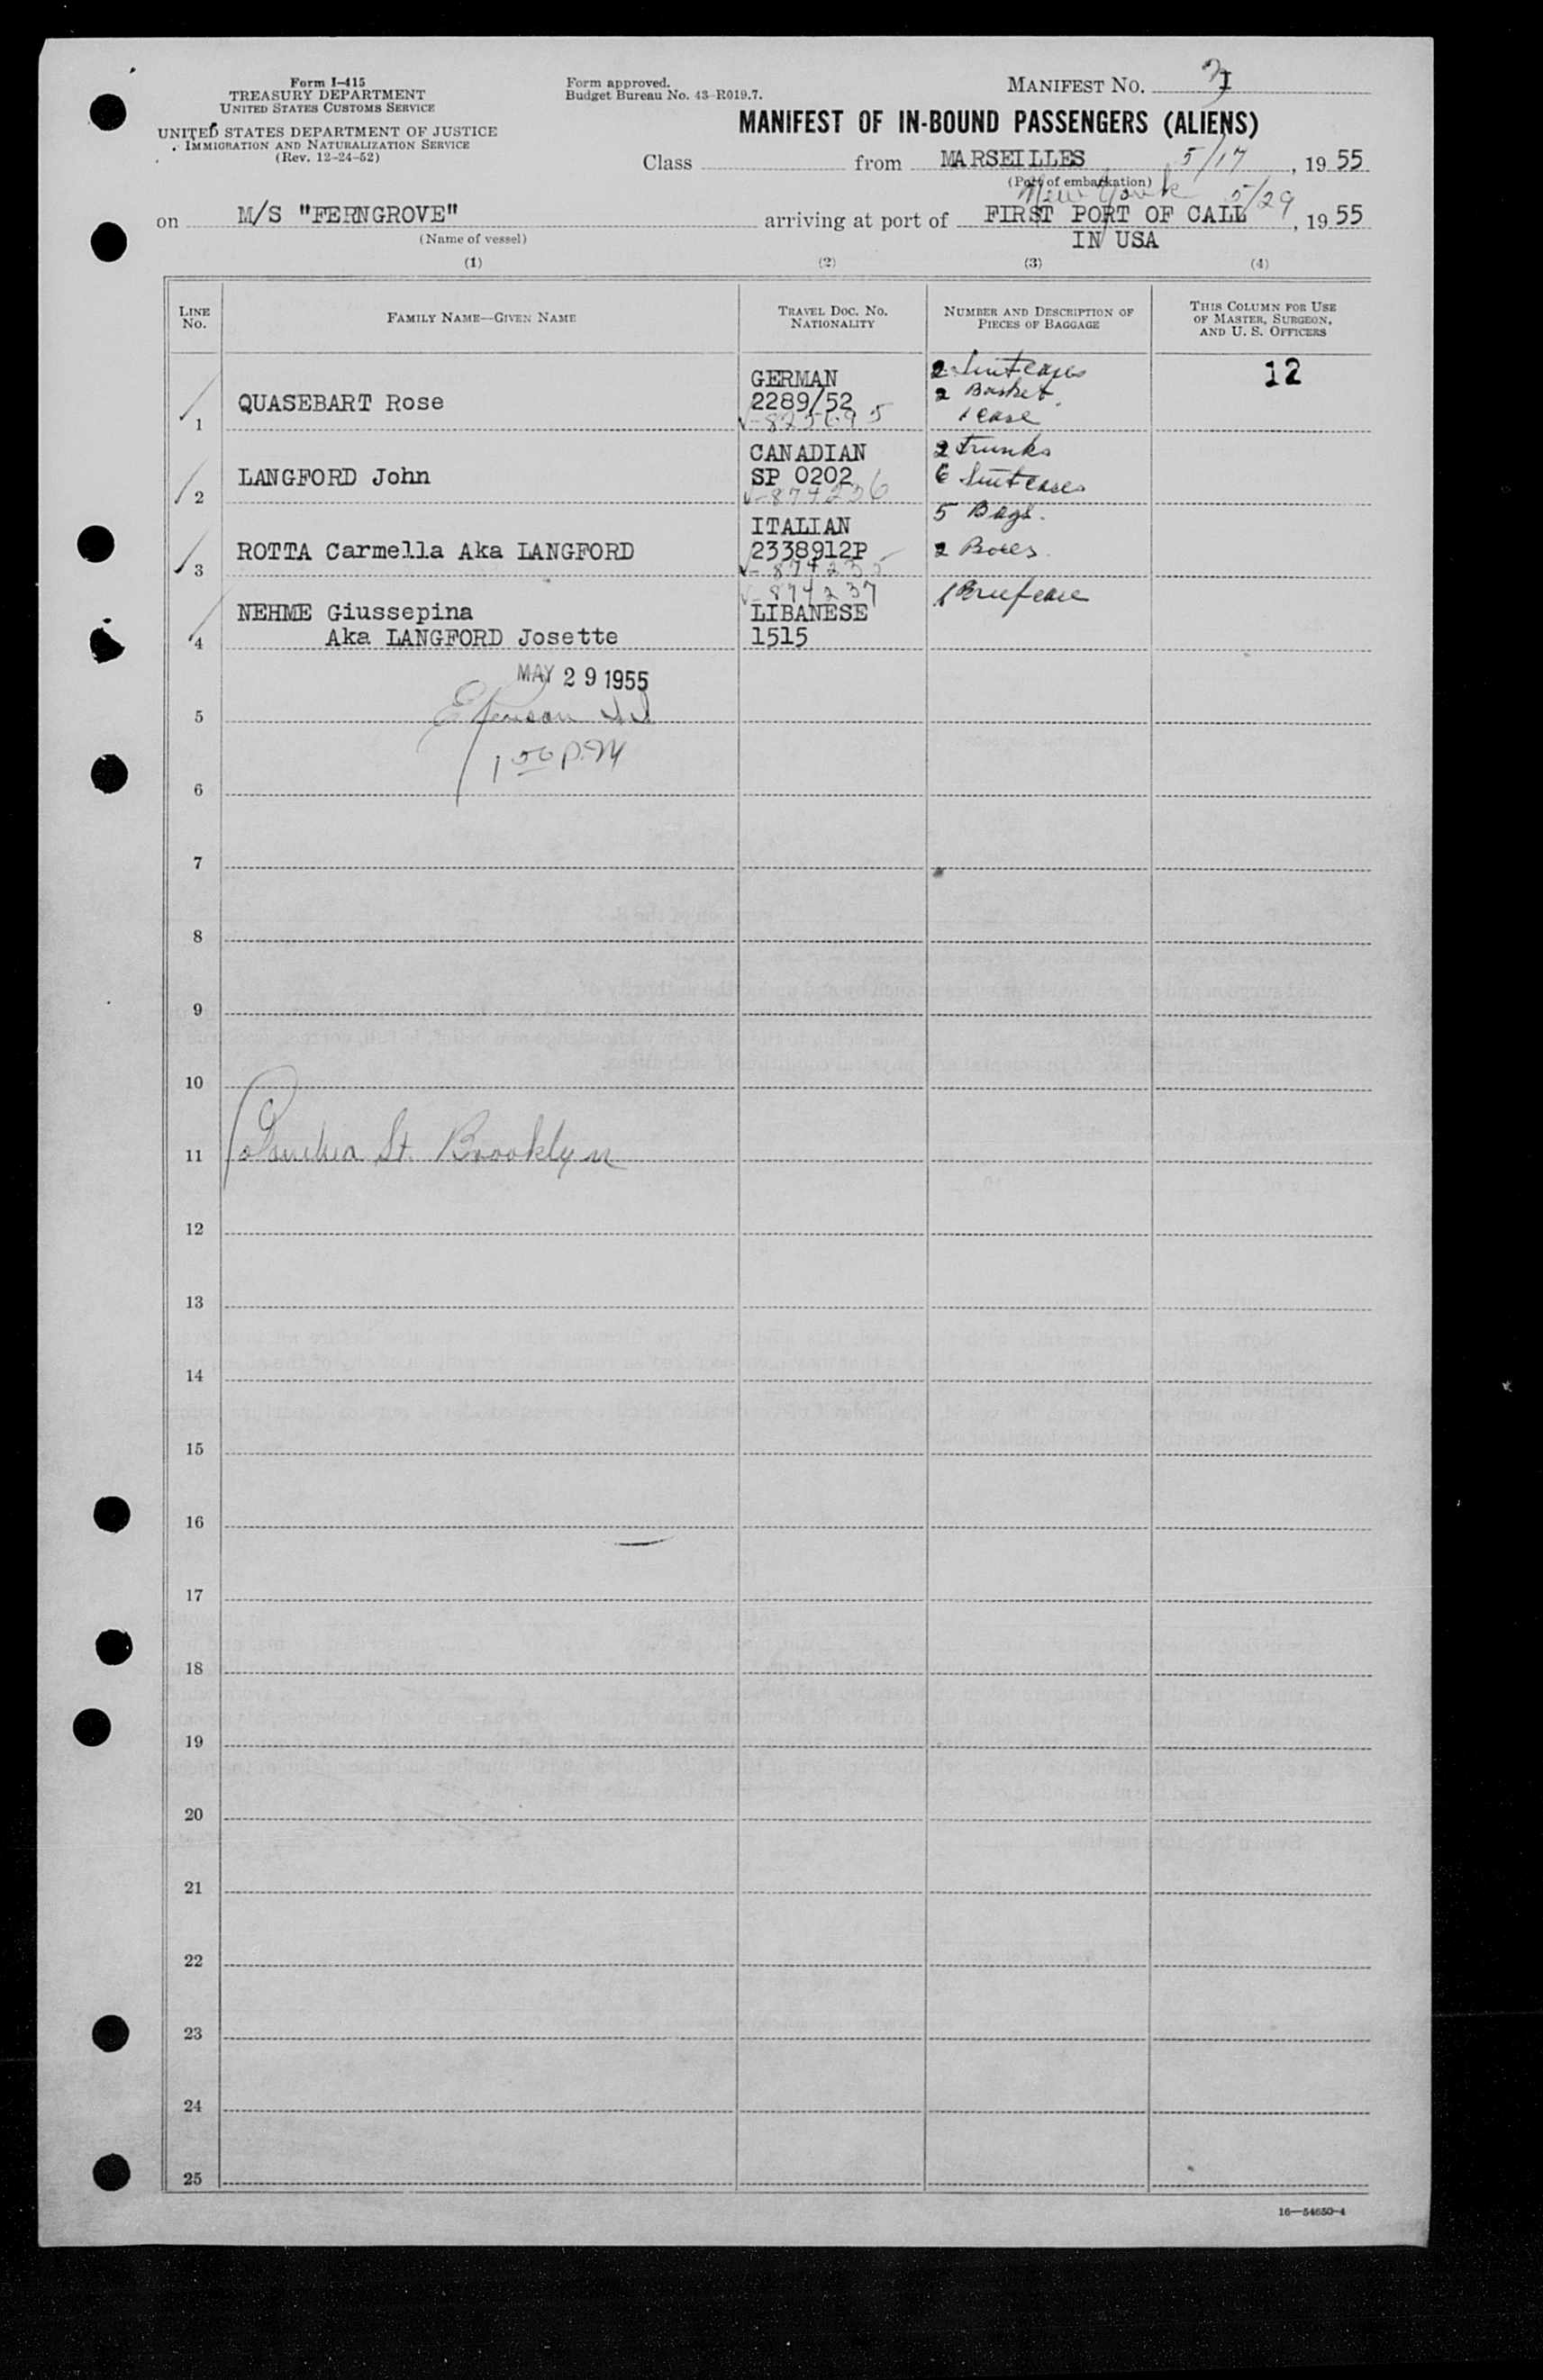 Form I-415
TREASURY DEPARTMENT
UNITED STATES CUSTOMS SERVICE
UNITED STATES DEPARTMENT OF JUSTICE
IMMIGRATION AND NATURALIZATION SERVICE
(Rev. 12-24-52)
Form approved.
Budget Bureau No. 43-R019.7.
MANIFEST NO.
MANIFEST OF IN-BOUND PASSENGERS (ALIENS)
Class from MARSEILLES 5/17, 19 55
(Port of embarkation)
New York 5/29
on M/S "FERNGROVE" arriving at port of FIRST PORT OF CALL, 19 55
(Name of vessel) IN USA
(1) (2) (3) (4)
LINE No. FAMILY NAME—GIVEN NAME TRAVEL DOC. NO. NATIONALITY NUMBER AND DESCRIPTION OF PIECES OF BAGGAGE THIS COLUMN FOR USE OF MASTER, SURGEON, AND U. S. OFFICERS
GERMAN 2 Suitcases 12
1 QUASEBART Rose 2289/52 2 Basket
V-825695 1 case
CANADIAN 2 Trunks
2 LANGFORD John SP 0202 6 Suitcases
V-874236
ITALIAN 5 Bags.
3 ROTTA Carmella Aka LANGFORD 2338912P 2 Boxes
V-874235
V-874237 1 Briefcase
NEHME Giussepina LIBANESE
4 Aka LANGFORD Josette 1515
MAY 29 1955
5
1 50 P.M
6
7
8
9
10
11 St. Brooklyn
12
13
14
15
16
17
18
19
20
21
22
23
24
25
16—54650-4